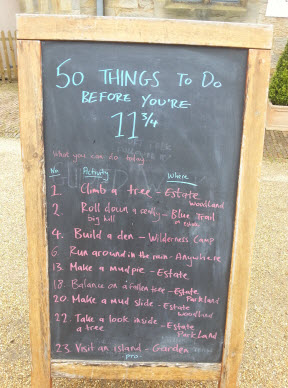 50 THINGS TO DO
BEFORE YOU'RE
11 3/4
What you can do today
No. Activity Where
1. Climb a tree - Estate
woodland
2. Roll down a really - Blue Trail
big hill
4. Build a den - Wilderness Camp
6. Run around in the rain - Anywhere
13. Make a mudpie - Estate
18. Balance on a fallen tree - Estate
Parkland
20. Make a mud slide - Estate
woodland
22. Take a look inside - Estate
a tree Parkland
23. Visit an island - Garden